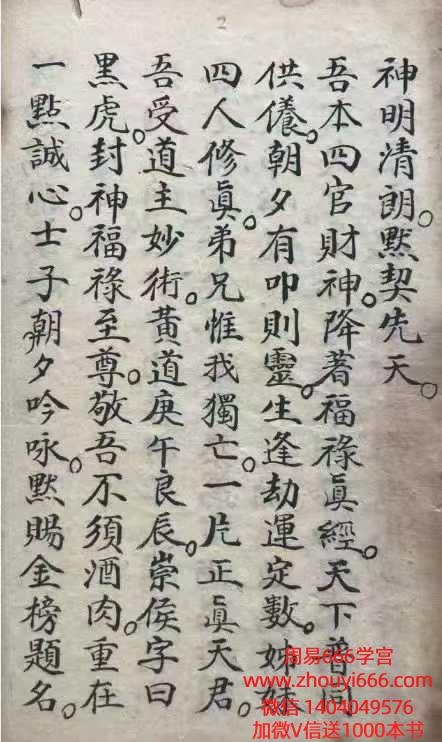 2
神明清朗。默契先天。
吾本四官財神。降著福祿眞經。天下普同
供儀。朝夕有叩則靈。生逢劫運定數。姊妹
四人修眞。弟兄惟我獨亡。一片正眞天君。
吾受道主妙術。黃道庚午良辰。崇侯字曰
黑虎。封神福祿至尊。敬吾不須酒肉。重在
一點誠心。士子朝夕吟咏。默賜金榜題名。
周易666学宫
www.zhouyi666.com
微信 1404049576
加微V信送1000本书